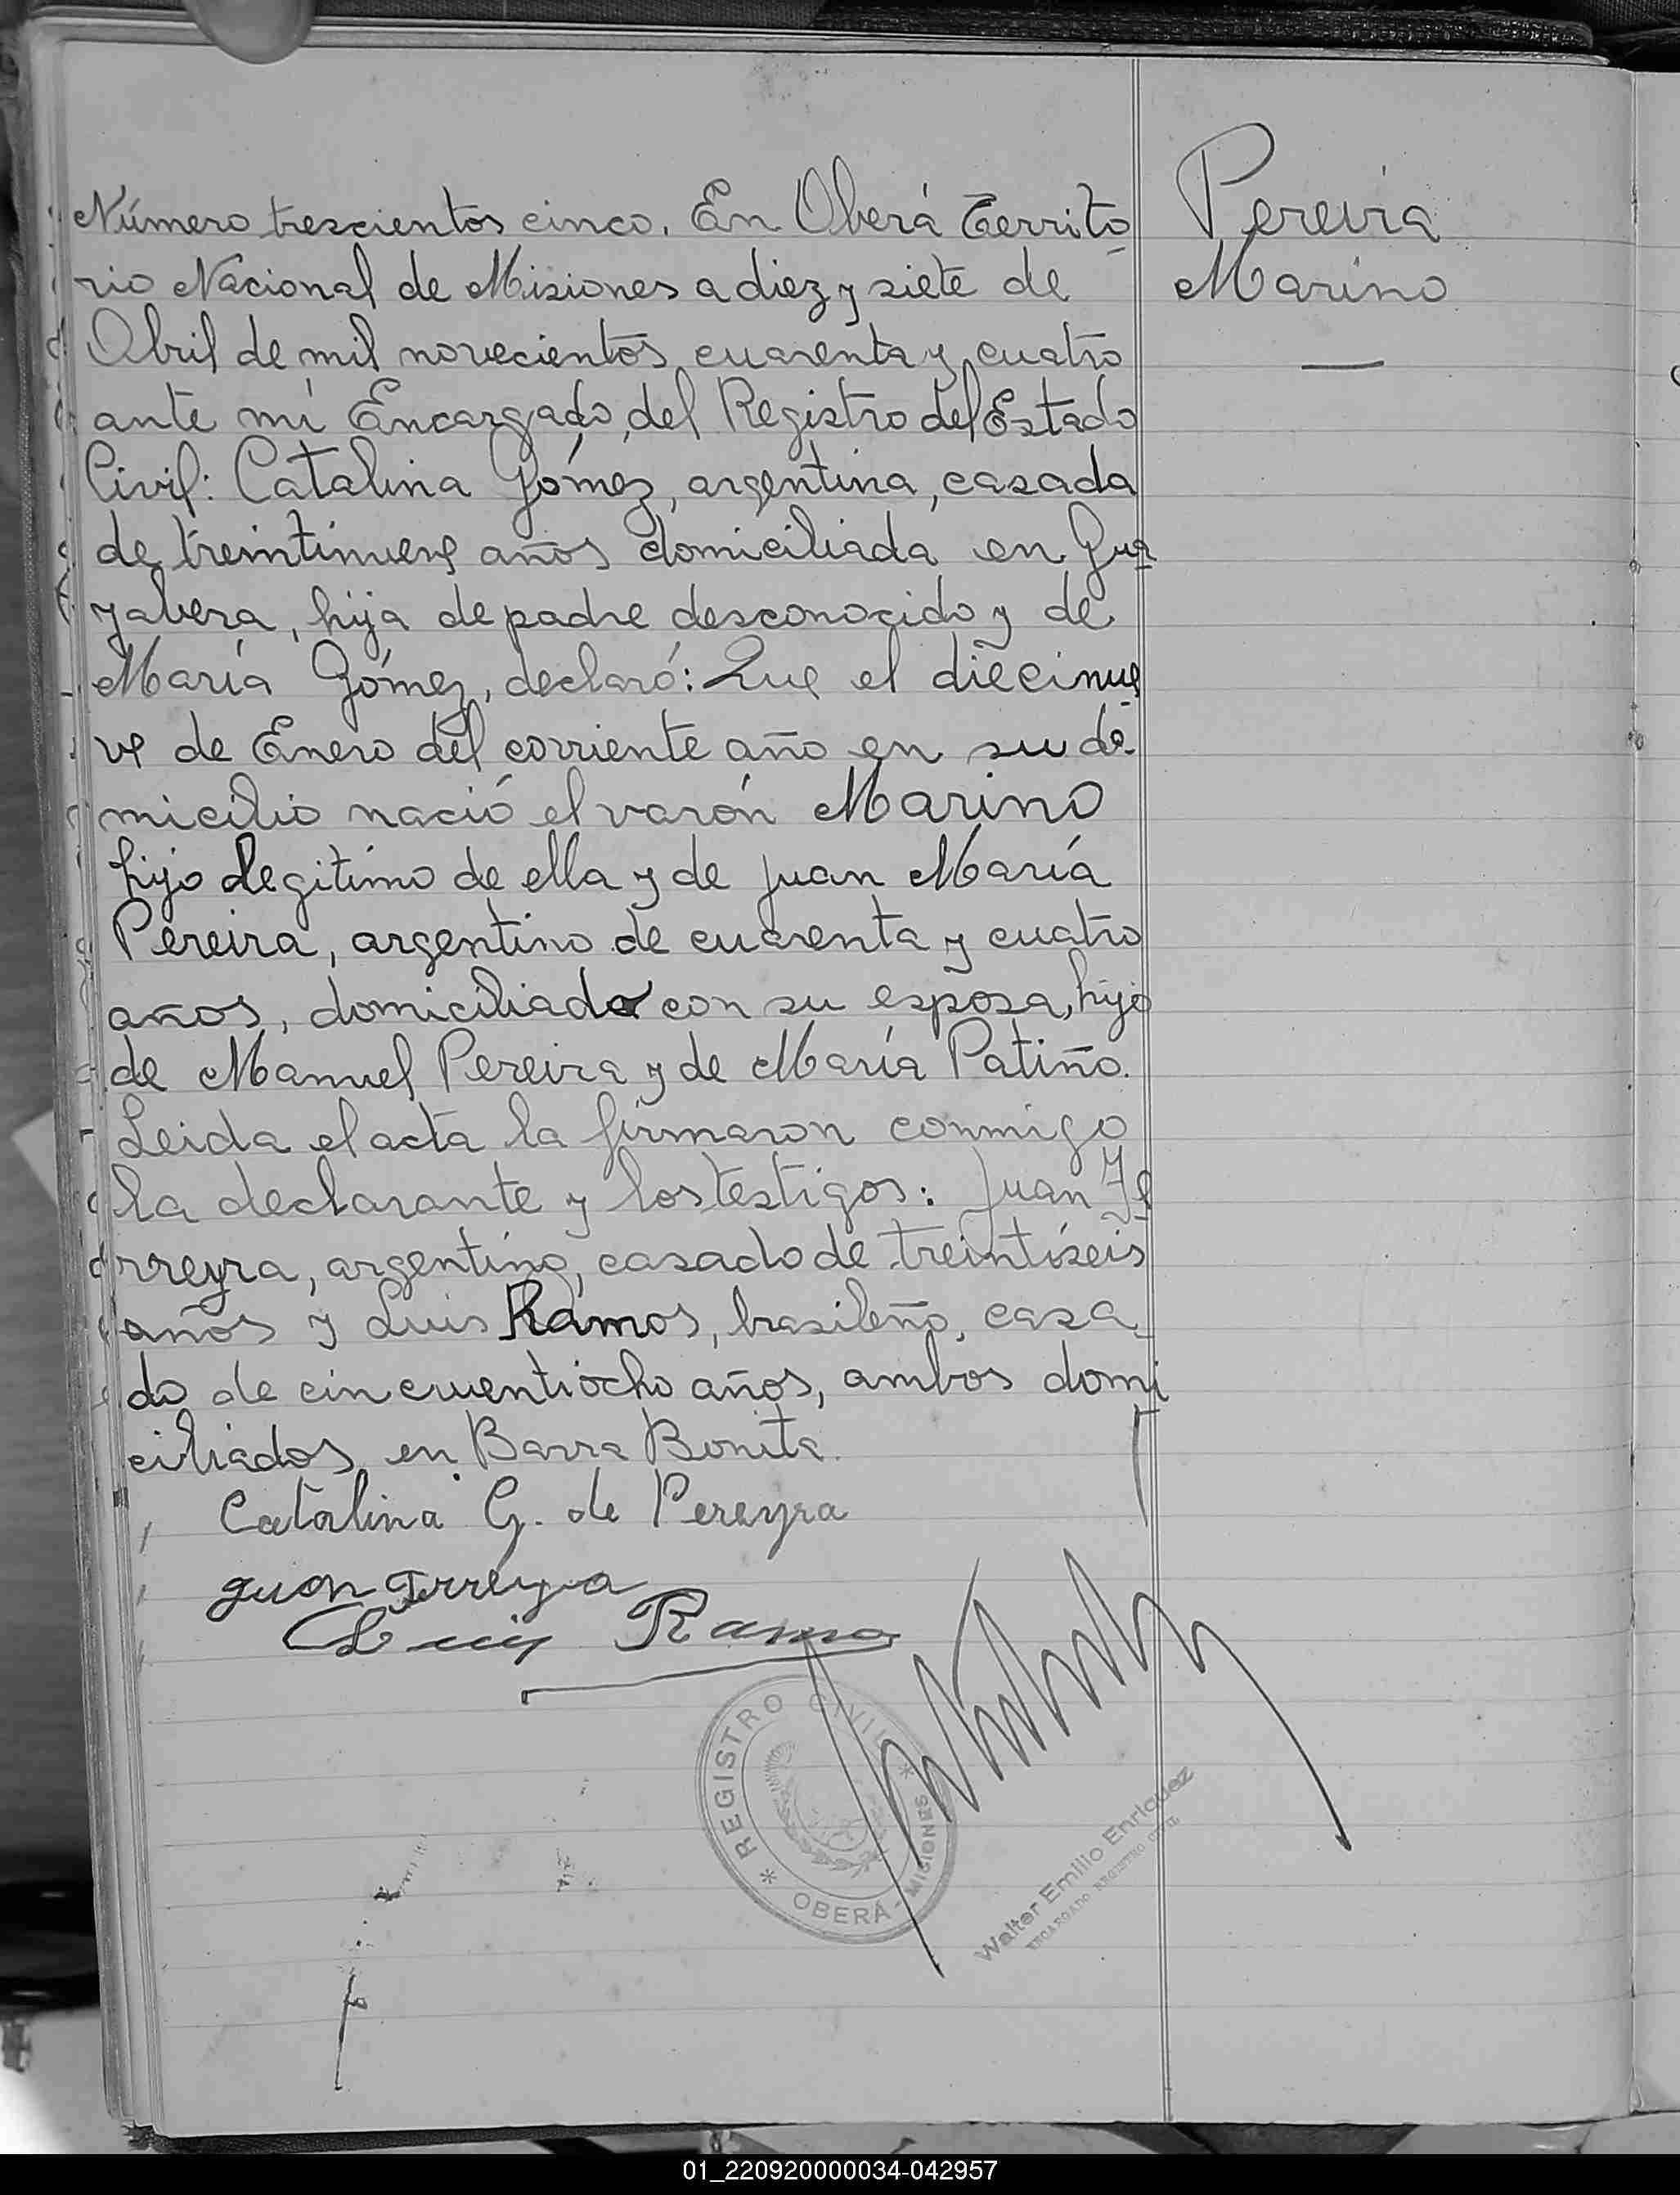 Número trescientos cinco. En Oberá Territo-
rio Nacional de Misiones a diez y siete de
Abril de mil novecientos cuarenta y cuatro
ante mí Encargado del Registro del Estado
Civil: Catalina Gómez, argentina, casada
de treintinueve años domiciliada en Gua-
yabera, hija de padre desconocido y de
María Gómez, declaró: Que el diecinue-
ve de Enero del corriente año en su do-
micilio nació el varón Marino
hijo legitimo de ella y de Juan María
Pereira, argentino de cuarenta y cuatro
años, domiciliado con su esposa, hijo
de Manuel Pereira y de María Patiño.
Leida el acta la firmaron conmigo
la declarante y los testigos: Juan
rreyra, argentino, casado de treintiseis
años y Luis Ramos, brasileño, casa-
do de cincuentiocho años, ambos domi
ciliados en Barra Bonita.
Pereira
Marino
Catalina G. de Pereyra
Juan
Luis Ramos
* REGISTRO CIVIL *
OBERÁ - MISIONES
Walter Emilio Enriquez
ENCARGADO REGISTRO CIVIL
01_220920000034-042957